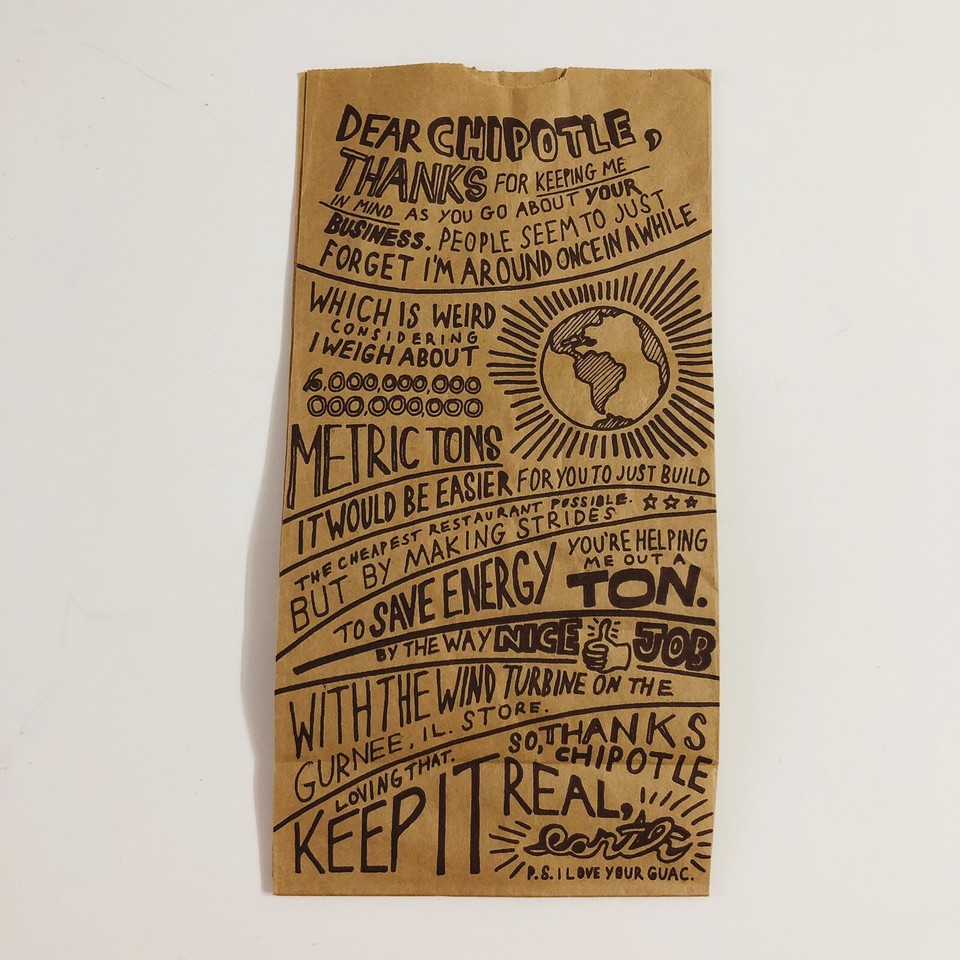 DEAR CHIPOTLE,
THANKS FOR KEEPING ME
IN MIND AS YOU GO ABOUT YOUR
BUSINESS. PEOPLE SEEM TO JUST
FORGET I'M AROUND ONCE IN A WHILE
WHICH IS WEIRD
CONSIDERING
I WEIGH ABOUT
6,000,000,000
000,000,000
METRIC TONS
IT WOULD BE EASIER FOR YOU TO JUST BUILD
THE CHEAPEST RESTAURANT POSSIBLE.
BUT BY MAKING STRIDES
TO SAVE ENERGY
YOU'RE HELPING
ME OUT A
TON.
BY THE WAY NICE JOB
WITH THE WIND TURBINE ON THE
GURNEE, IL. STORE.
LOVING THAT.
SO, THANKS
CHIPOTLE
KEEP IT REAL,
earth
P.S. I LOVE YOUR GUAC.